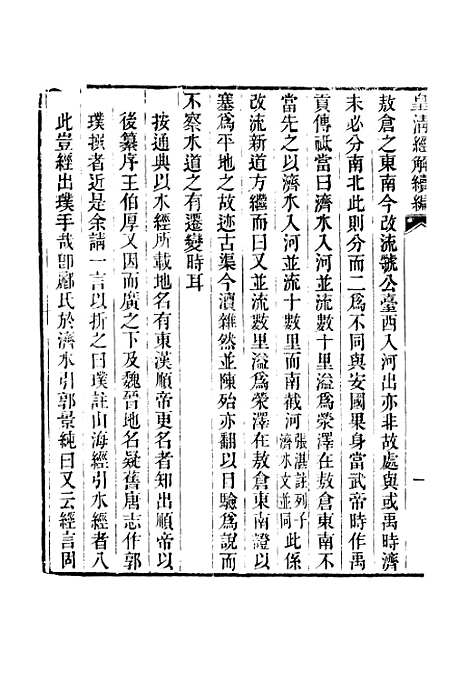 皇清經解續編
一
敖倉之東南今改流號公臺西入河出亦非故處與或禹時濟
未必分南北此則分而二爲不同與安國果身當武帝時作禹
貢傳祇當曰濟水入河並流數十里溢爲滎澤在敖倉東南不
當先之以濟水入河並流十數里而南截河張湛註列子濟水文並同此係
改流新道方繼而曰又並流數里溢爲滎澤在敖倉東南證以
塞爲平地之故迹古渠今瀆雜然並陳殆亦翻以目驗爲說而
不察水道之有遷變時耳
按通典以水經所載地名有東漢順帝更名者知出順帝以
後纂序王伯厚又因而廣之下及魏晉地名疑舊唐志作郭
璞撰者近是余請一言以折之曰璞註山海經引水經者八
此豈經出璞手哉卽酈氏於濟水引郭景純曰又云經言固